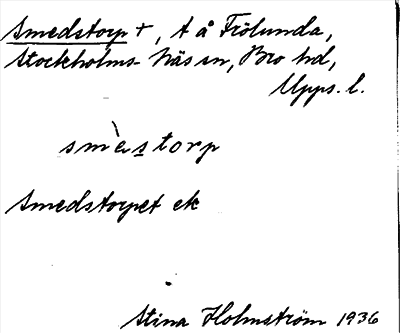 Smedstorp +, t å Frölunda,
Stockholms-Näs sn, Bro hd,
Upps. l.
smὲstorp
Smedstorpet ek
Stina Holmström 1936